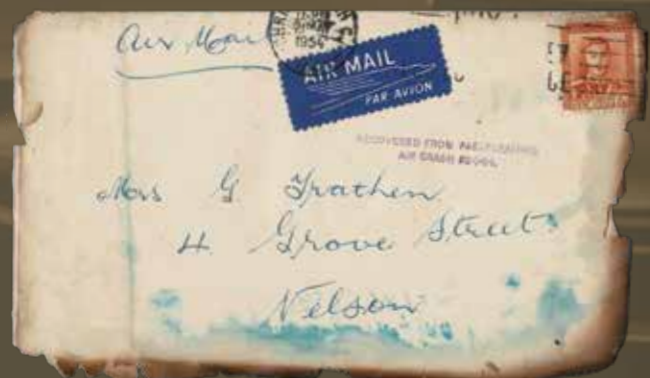 Air Mail
1954
AIR MAIL
PAR AVION
RECOVERED FROM
AIR CRASH
Mrs G Trathen
4 Grove Street
Nelson